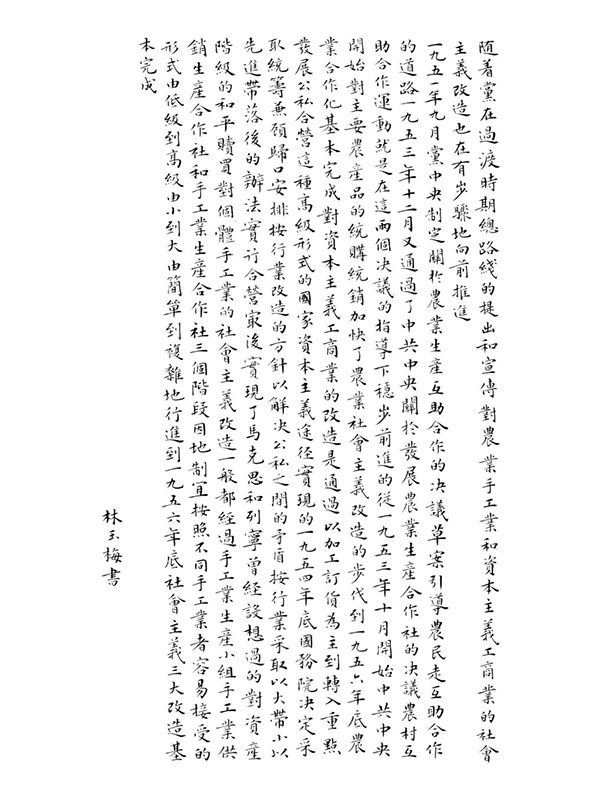 随着黨在過渡時期總路綫的提出和宣傳對農業手工業和資本主義工商業的社會
主義改造也在有步驟地向前推進
一九五一年九月黨中央制定關於農業生産互助合作的决議草案引導農民走互助合作
的道路一九五三年十二月又通過了中共中央關於發展農業生産合作社的决議農村互
助合作運動就是在這兩個决議的指導下穩步前進的從一九五三年十月開始中共中央
開始對主要農産品的統購統銷加快了農業社會主義改造的步伐到一九五六年底農
業合作化基本完成對資本主義工商業的改造是通過以加工訂貨為主到轉入重點
發展公私合營這種高級形式的國家資本主義途径實現的一九五四年底國務院决定采
取統籌兼顧歸口安排按行業改造的方針以解决公私之間的矛盾按行業采取以大帶小以
先進帶落後的辦法實行合營最後實現了馬克思和列寧曾經設想過的對資産
階級的和平贖買對個體手工業的社會主義改造一般都經過手工業生産小組手工業供
銷生産合作社和手工業生産合作社三個階段因地制宜按照不同手工業者容易接受的
形式由低級到高級由小到大由簡單到複雜地行進到一九五六年底社會主義三大改造基
本完成
林玉梅書